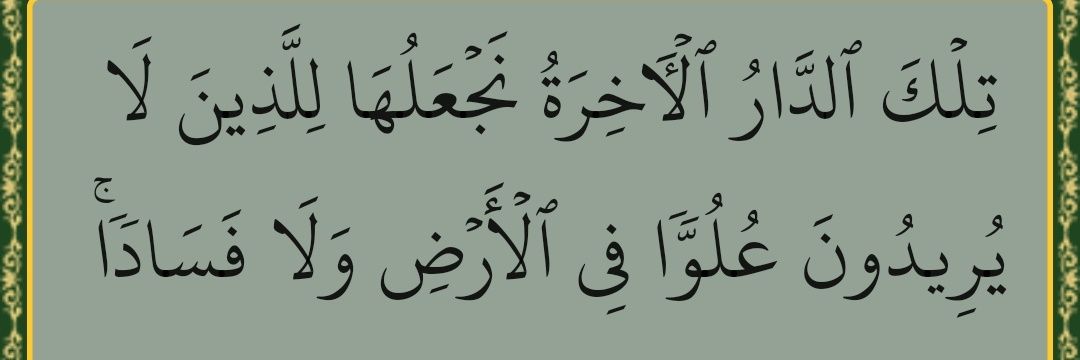 تِلْكَ ٱلدَّارُ ٱلْأَخِرَةُ نَجْعَلُهَا لِلَّذِينَ لَا
يُرِيدُونَ عُلُوًّا فِى ٱلْأَرْضِ وَلَا فَسَادًاۚ